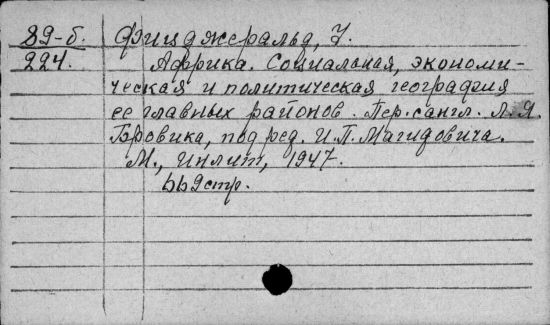 89-б. Фицджеральд, У.
224. Африка. Социальная, экономи-
ческая и политическая география
ее главных районов. Пер. с англ. Л. Я.
Боровика, под ред. И. П. Магидовича.
М., Инлит, 1947.
669 стр.